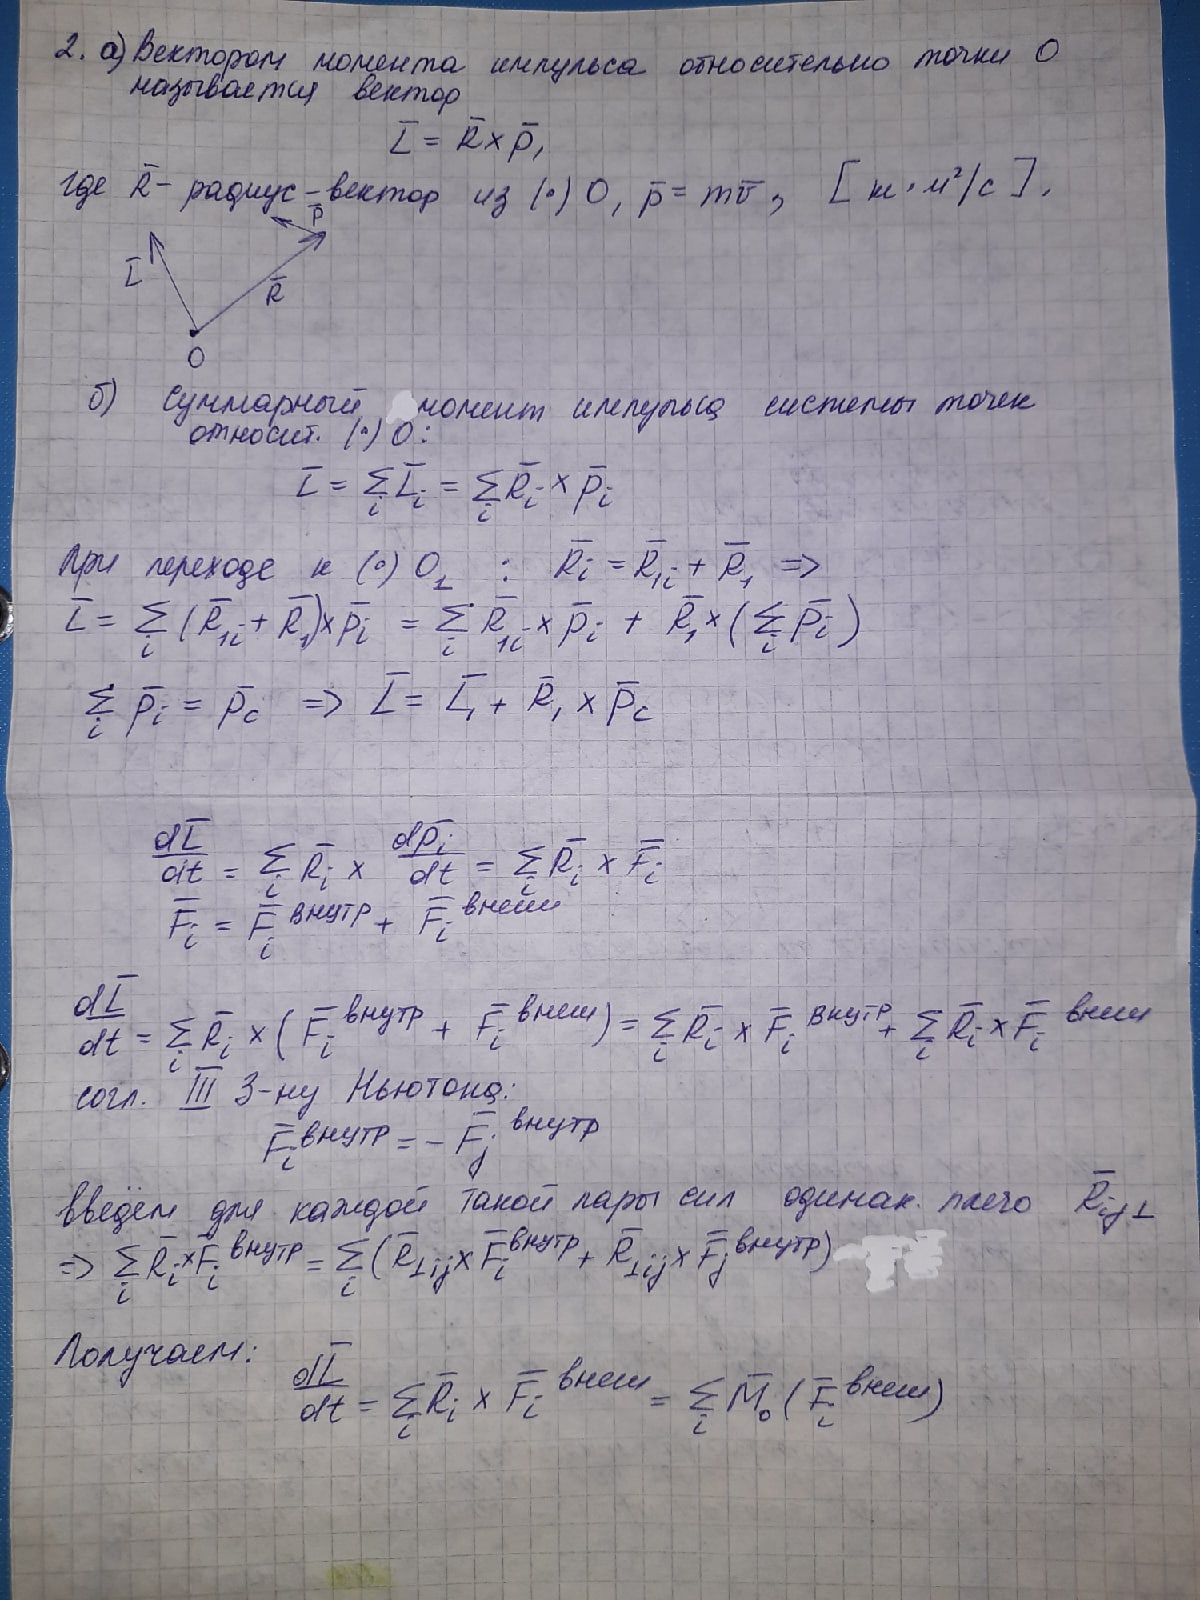 2. а) Вектором момента импульса относительно точки O
называется вектор
L̄ = R̄ × p̄,
где R̄ - радиус-вектор из (•) O, p̄ = mv̄, [кг · м²/с].
p̄
L̄
R̄
O
б) Суммарный момент импульса системы точек
относит. (•) O:
L̄ = Σᵢ L̄ᵢ = Σᵢ R̄ᵢ × p̄ᵢ
При переходе к (•) O₁ : R̄ᵢ = R̄₁ᵢ + R̄₁ =>
L̄ = Σᵢ (R̄₁ᵢ + R̄₁) × p̄ᵢ = Σᵢ R̄₁ᵢ × p̄ᵢ + R̄₁ × (Σᵢ p̄ᵢ)
Σᵢ p̄ᵢ = p̄c => L̄ = L̄₁ + R̄₁ × p̄c
dL̄/dt = Σᵢ R̄ᵢ × dp̄ᵢ/dt = Σᵢ R̄ᵢ × F̄ᵢ
F̄ᵢ = F̄ᵢ внутр + F̄ᵢ внеш
dL̄/dt = Σᵢ R̄ᵢ × (F̄ᵢ внутр + F̄ᵢ внеш) = Σᵢ R̄ᵢ × F̄ᵢ внутр + Σᵢ R̄ᵢ × F̄ᵢ внеш
согл. III З-ну Ньютона:
F̄ᵢ внутр = - F̄ⱼ внутр
введём для каждой такой пары сил одинак. плечо R̄ᵢⱼ⊥
=> Σᵢ R̄ᵢ × F̄ᵢ внутр = Σᵢ (R̄⊥ᵢⱼ × F̄ᵢ внутр + R̄⊥ᵢⱼ × F̄ⱼ внутр)
Получаем:
dL̄/dt = Σᵢ R̄ᵢ × F̄ᵢ внеш = Σᵢ M̄₀ (F̄ᵢ внеш)